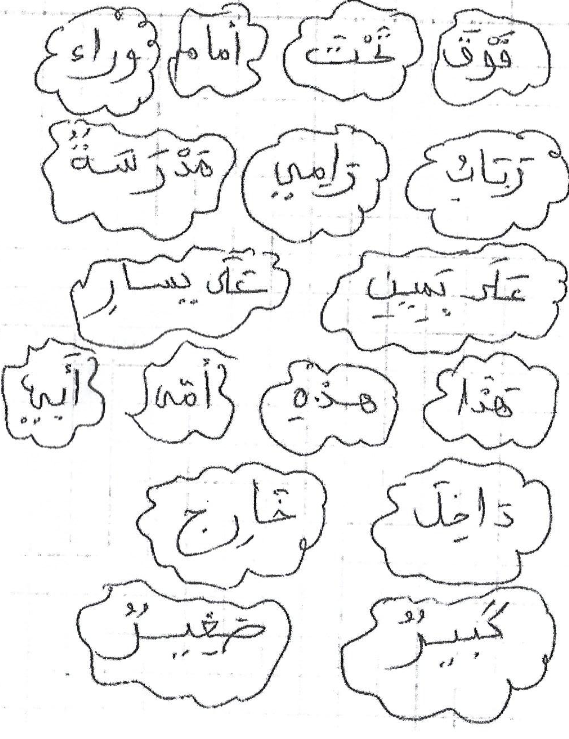 فَوْقَ تَحْتَ أَمام وراء
رَبَابُ رَامِي مَدْرَسَةٌ
عَلَى يَمِينِ عَلَى يسارِ
هَذَا هـذِهِ أمّى أَبِي
دَاخِلَ خَارِج
كَبِيرٌ صَغِيرٌ